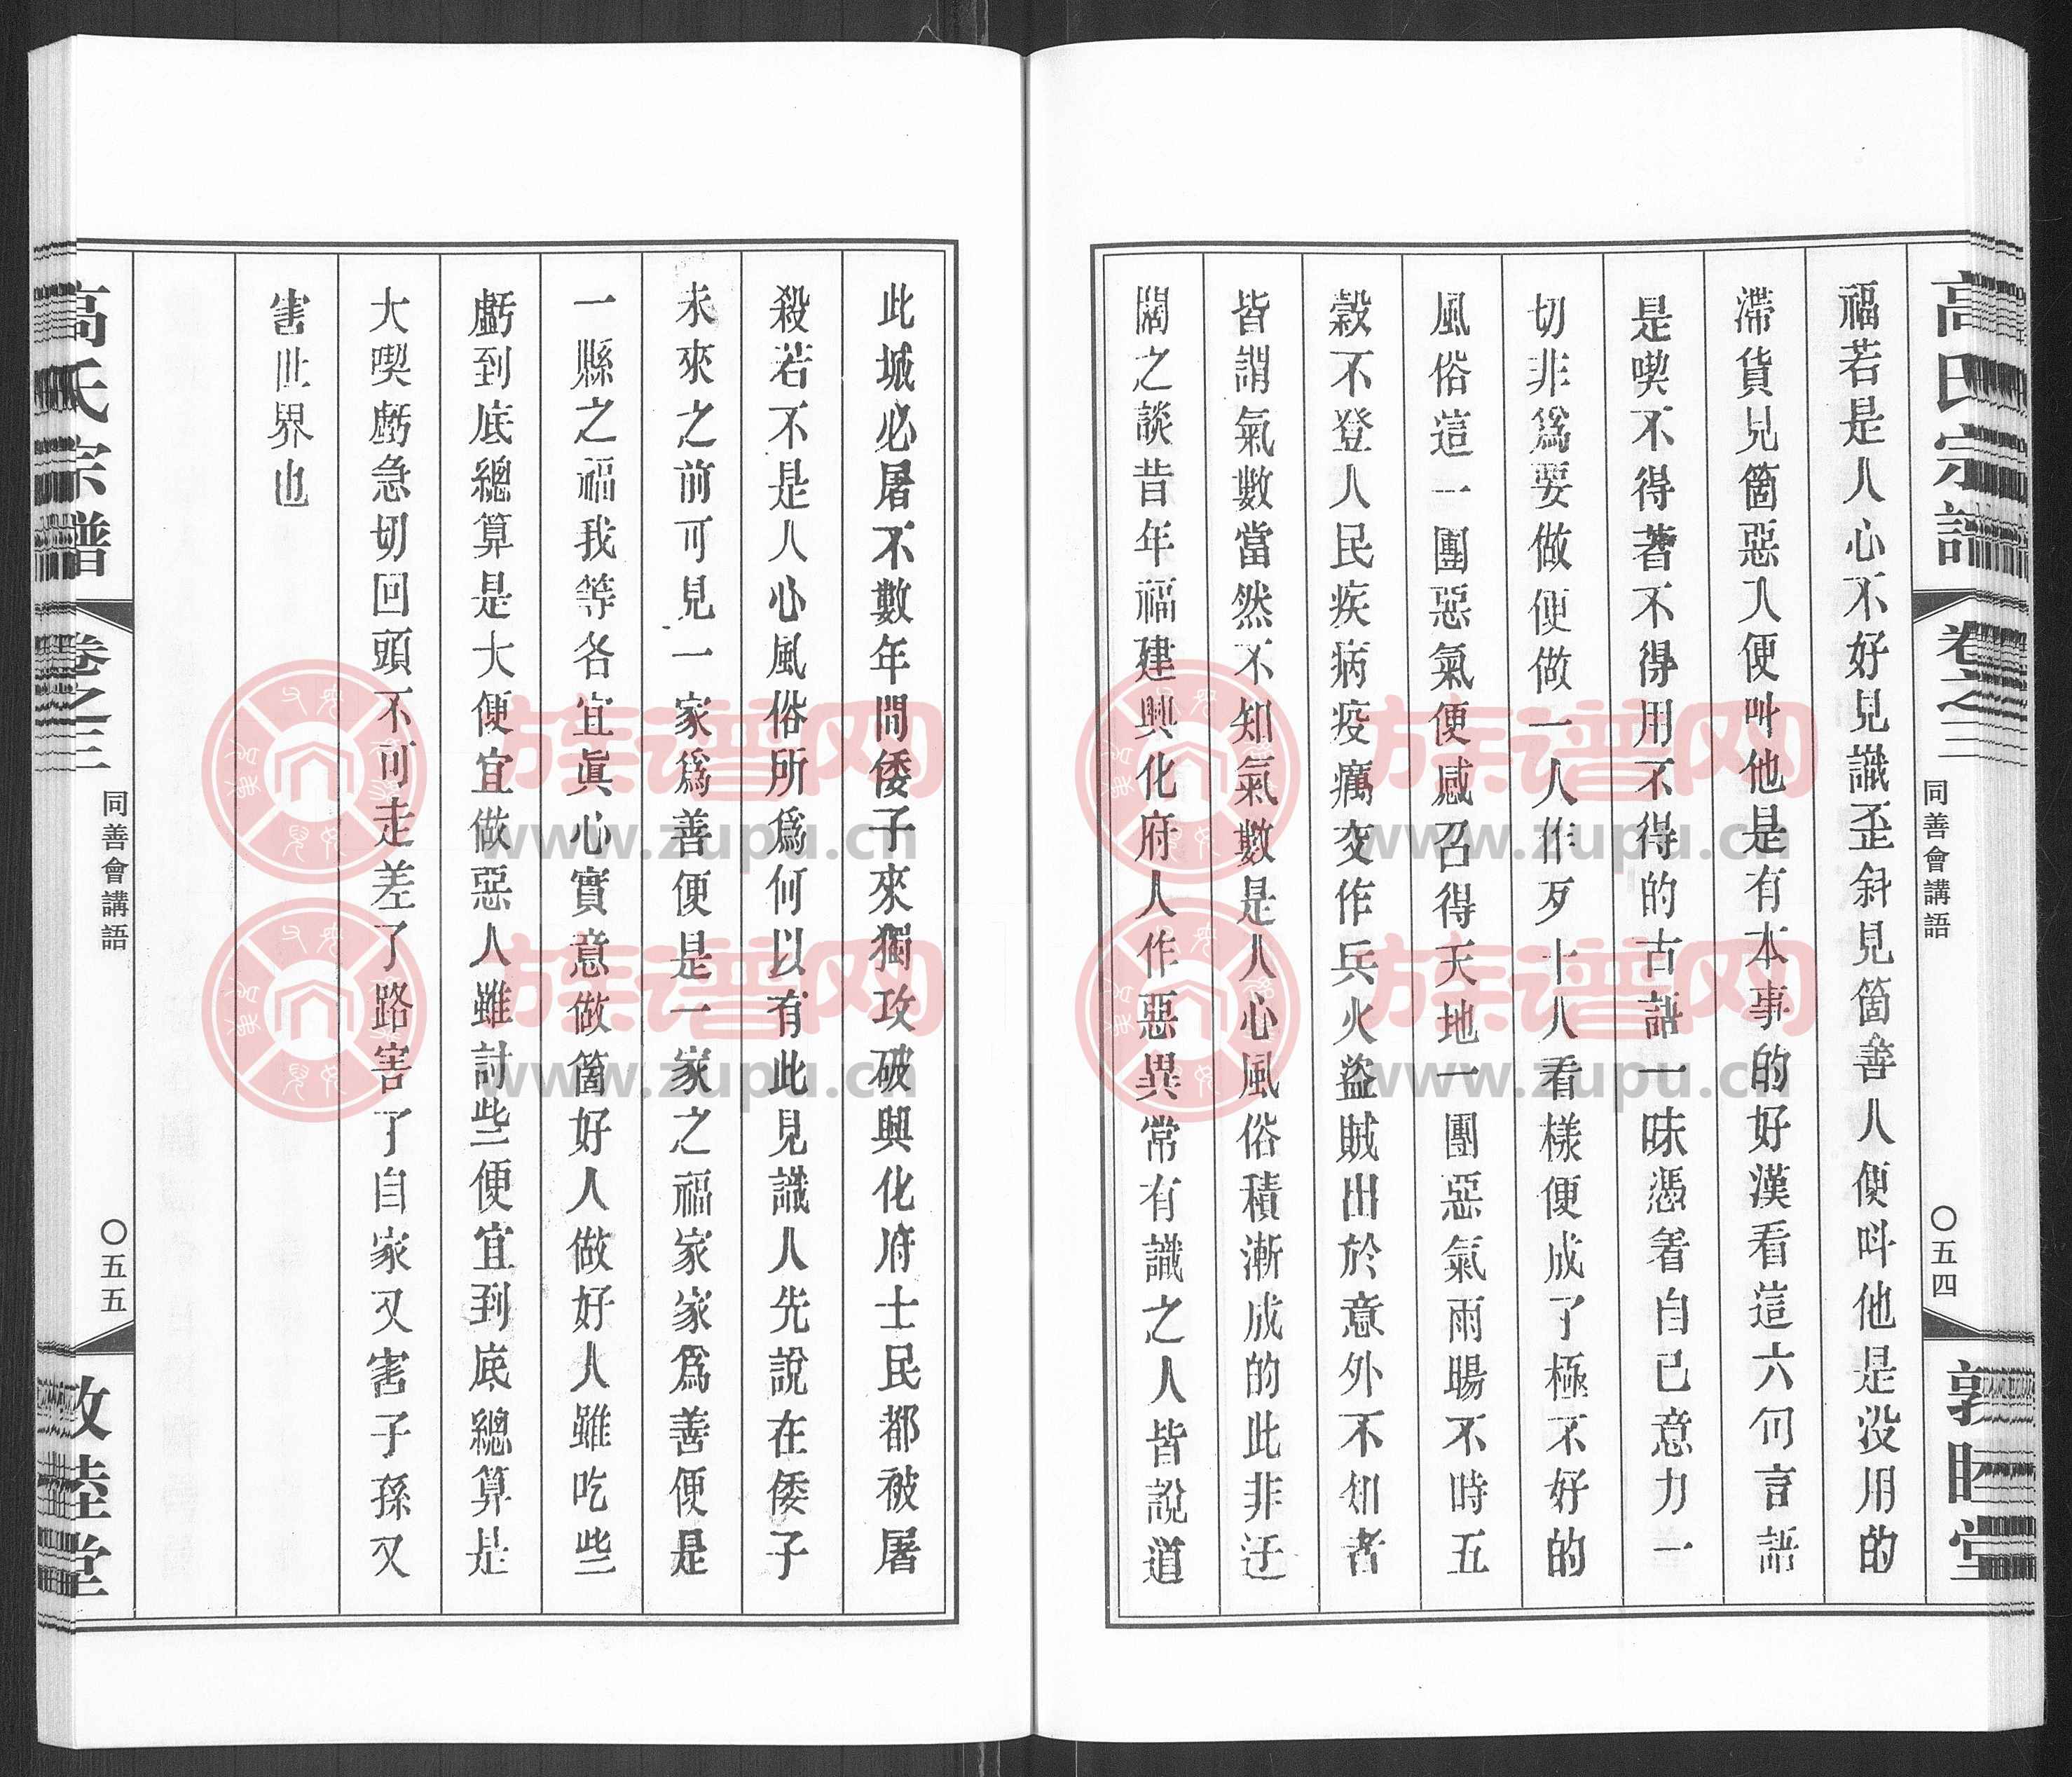 高氏宗譜
卷之三
同善會講語
〇五四
敦睦堂
福若是人心不好見識歪斜見箇善人便呌他是没用的
滯貨見箇惡人便呌他是有本事的好漢看這六句言語
是喫不得著不得用不得的古語一味憑着自己意力一
切非爲要做便做一人作歹十人看樣便成了極不好的
風俗這一團惡氣便感召得天地一團惡氣雨暘不時五
穀不登人民疾病疫癘交作兵火盜賊出於意外不知者
皆謂氣數當然不知氣數是人心風俗積漸成的此非迂
闊之談昔年福建興化府人作惡異常有識之人皆說道
此城必屠不數年間倭子來獨攻破興化府士民都被屠
殺若不是人心風俗所爲何以有此見識人先說在倭子
未來之前可見一家爲善便是一家之福家家爲善便是
一縣之福我等各宜眞心實意做箇好人做好人雖吃些
虧到底總算是大便宜做惡人雖討些便宜到底總算是
大喫虧急切回頭不可走差了路害了自家又害子孫又
害世界也
高氏宗譜
卷之三
同善會講語
〇五五
敦睦堂
族谱网
www.zupu.cn
族谱网
www.zupu.cn
族谱网
www.zupu.cn
族谱网
www.zupu.cn